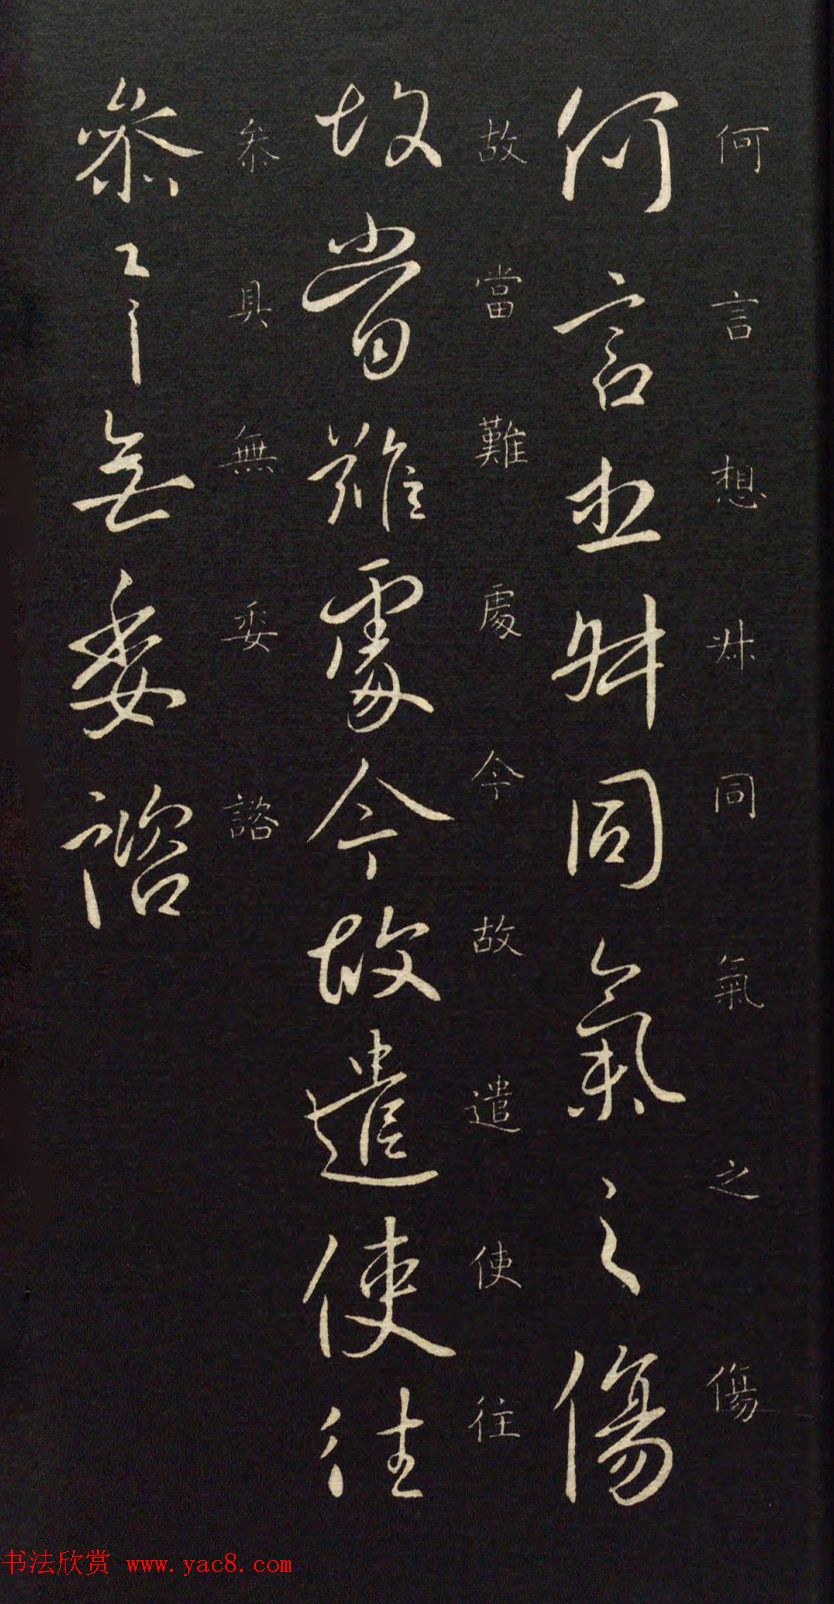 何言想同氣之傷
何言想同氣之傷
故當難處今故遣使往
故當難處今故遣使往
參具無委諮
參具無委諮
书法欣赏 www.yac8.com